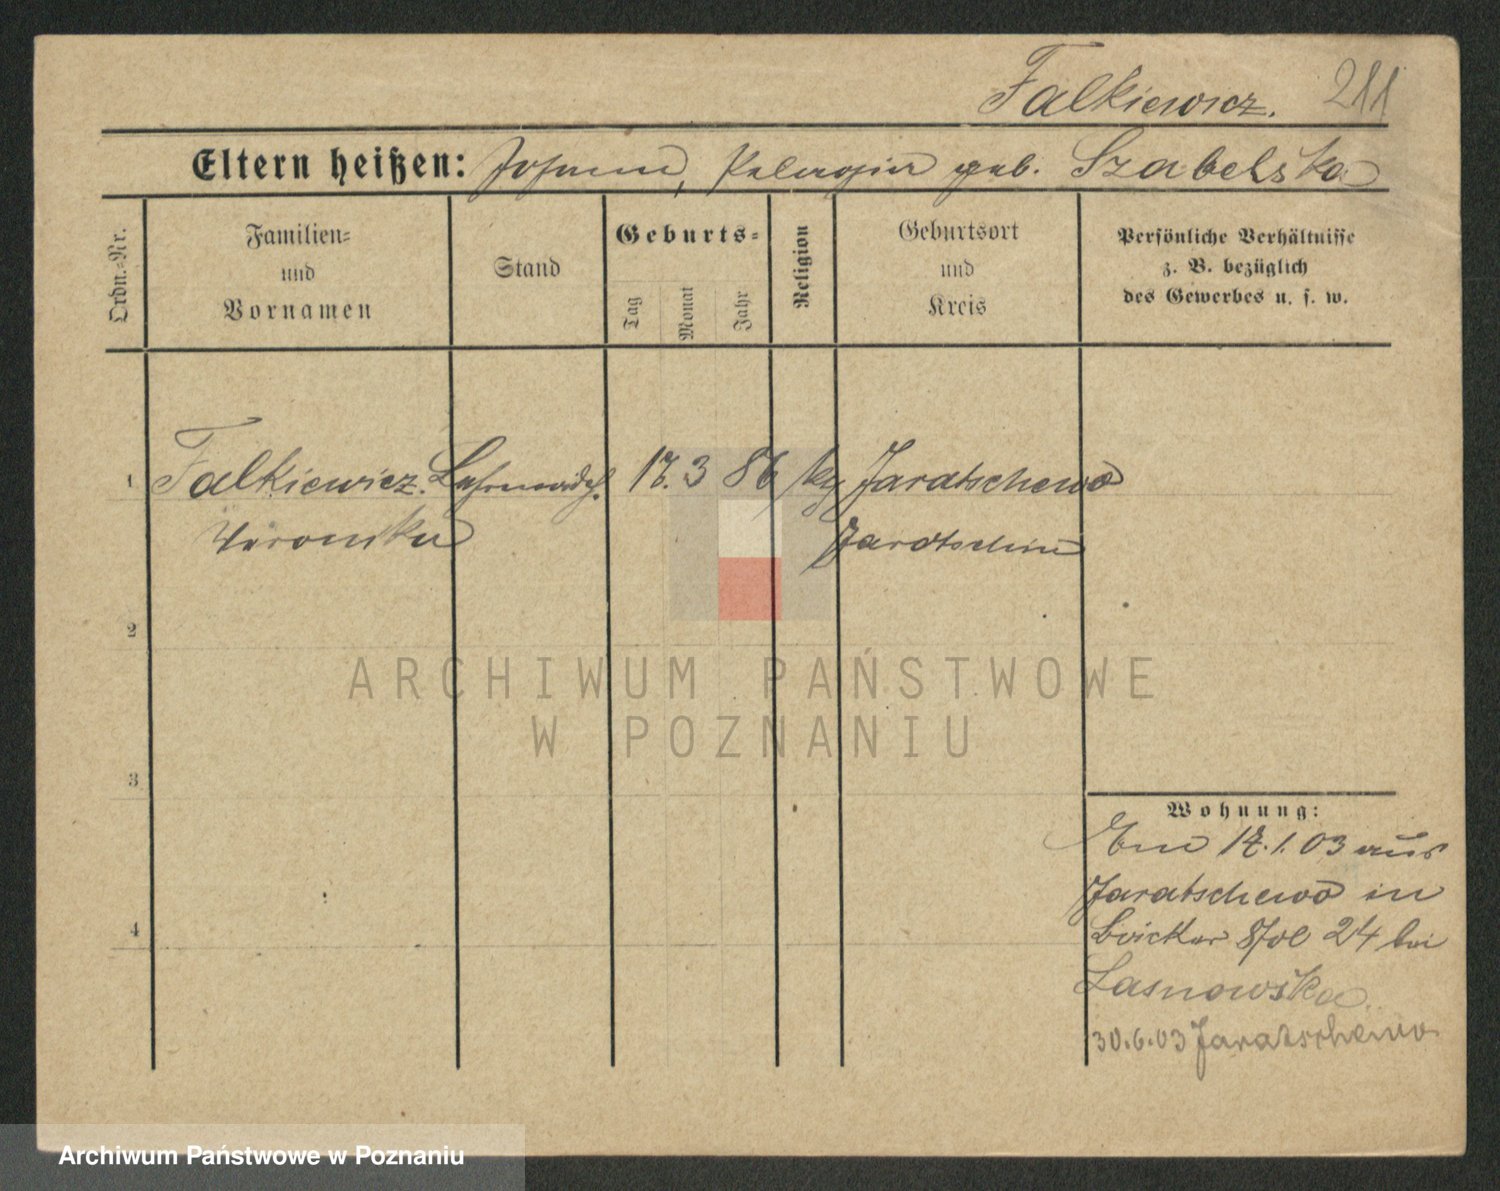 Falkiewicz. 211
Eltern heißen: Johann, Pelagia geb. Szabelska
Ordn.-Nr.
Familien-
und
Vornamen
Stand
Geburts-
Tag
Monat
Jahr
Religion
Geburtsort
und
Kreis
Persönliche Verhältnisse
z. B. bezüglich
des Gewerbes u. s. w.
1 Falkiewicz. 17. 3 86 Jaratschewo
Veronika Jarotschin
2
ARCHIWUM PAŃSTWOWE
W POZNANIU
3
Wohnung:
17.1.03 aus
Jaratschewo in
24 bei
Lasnowska.
30.6.03 Jaratschewo
4
Archiwum Państwowe w Poznaniu